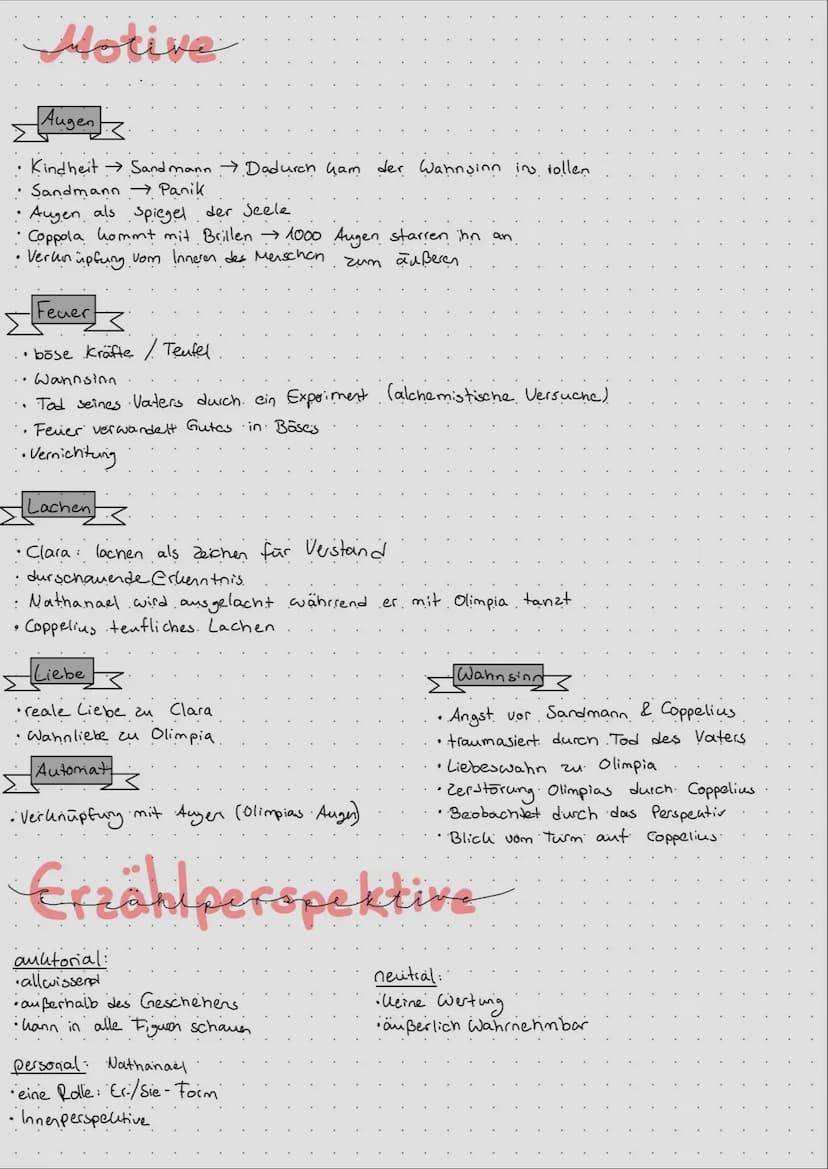 Motive
Augen
· Kindheit → Sandmann → Dadurch kam der Wahnsinn ins rollen
· Sandmann → Panik
· Augen als Spiegel der Seele
· Coppola kommt mit Brillen → 1000 Augen starren ihn an
· Verknüpfung vom Inneren des Menschen zum äußeren
Feuer
· böse Kräfte / Teufel
· Wahnsinn
· Tod seines Vaters durch ein Expoiment (alchemistische Versuche)
· Feuer verwandelt Gutes in Böses
· Vernichtung
Lachen
· Clara: lachen als zeichen für Verstand
· durschauende Erkenntnis
· Nathanael wird ausgelacht währrend er mit Olimpia tanzt
· Coppelius teufliches Lachen
Liebe
· reale Liebe zu Clara
· Wahnliebe zu Olimpia
Automat
· Verknüpfung mit Augen (Olimpias Augen)
Wahnsinn
· Angst vor Sandmann & Coppelius
· traumasiert durch Tod des Vaters
· Liebeswahn zu Olimpia
· Zerstörung Olimpias durch Coppelius
· Beobachtet durch das Perspektiv
· Blick vom Turm auf Coppelius
Erzählperspektive
auktorial:
· allwissend
· außerhalb des Geschehens
· kann in alle Figuren schauen
neutral:
· keine Wertung
· äußerlich Wahrnehmbar
personal: Nathanael
· eine Rolle: Er-/Sie-Form
· Innenperspektive